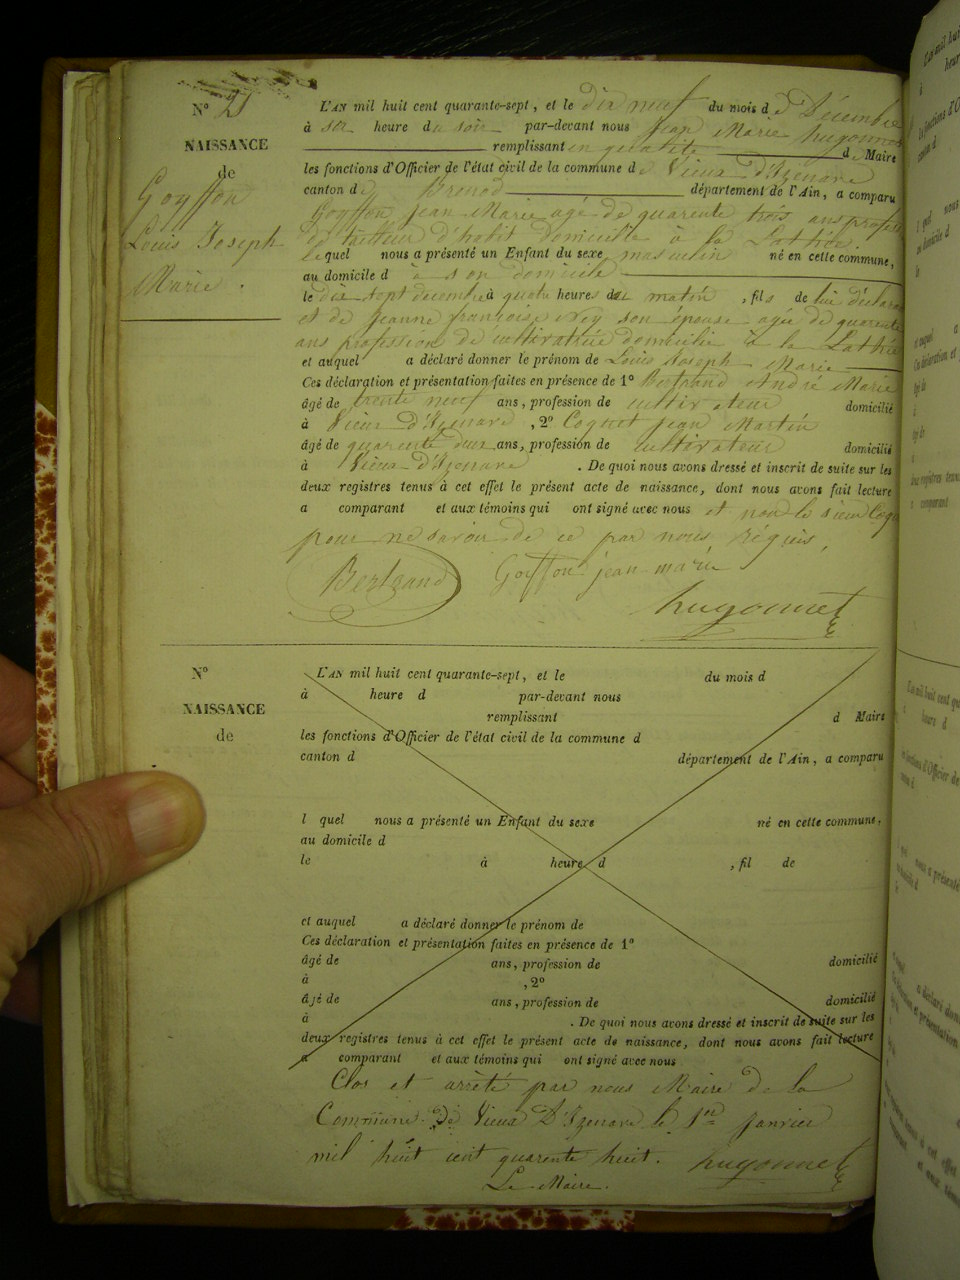 N° 21
NAISSANCE
de
Goyffon
Louis Joseph
Marie.
L'AN mil huit cent quarante-sept, et le dix neuf du mois de Décembre
à six heure du soir par-devant nous Jean Marie hugonnet
remplissant en qualité d Maire
les fonctions d'Officier de l'état civil de la commune de Vieux D'Izenave
canton de Brenod département de l'Ain, a comparu
Goyffon Jean Marie agé de quarente trois ans profession
de tailleur d'habit domicilié à la
lequel nous a présenté un Enfant du sexe masculin né en cette commune,
au domicile d à son domicile
le dix sept decembre à quatre heures du matin, fils de lui déclarant
et de Jeanne françoise Rey son épouse agée de quarente
ans profession de cultivatrice domicilié à la
et auquel a déclaré donner le prénom de Louis Joseph Marie
Ces déclaration et présentation faites en présence de 1° Bertrand André Marie
âgé de trente neuf ans, profession de cultivateur domicilié
à Vieux d'Izenave, 2° Coquet Jean Martin
âgé de quarente deux ans, profession de cultivateur domicilié
à Vieux d'Izenave. De quoi nous avons dressé et inscrit de suite sur les
deux registres tenus à cet effet le présent acte de naissance, dont nous avons fait lecture
a comparant et aux témoins qui ont signé avec nous et non le sieur Coquet
pour ne savoir de ce par nous réquis,
Bertrand Goiffon jean marie
hugonnet
N°
NAISSANCE
de
L'AN mil huit cent quarante-sept, et le du mois d
à heure d par-devant nous
remplissant d Maire
les fonctions d'Officier de l'état civil de la commune d
canton d département de l'Ain, a comparu
l quel nous a présenté un Enfant du sexe né en cette commune,
au domicile d
le à heure d , fil de
et auquel a déclaré donner le prénom de
Ces déclaration et présentation faites en présence de 1°
âgé de ans, profession de domicilié
à , 2°
âgé de ans, profession de domicilié
à . De quoi nous avons dressé et inscrit de suite sur les
deux registres tenus à cet effet le présent acte de naissance, dont nous avons fait lecture
a comparant et aux témoins qui ont signé avec nous
Clos et arrêté par nous Maire de la
Commune de Vieux D'Izenave le 1er Janvier
mil huit cent quarente huit. hugonnet
Le Maire.